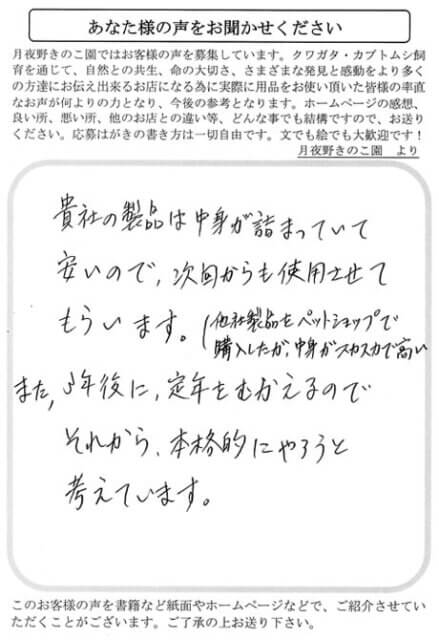 あなた様の声をお聞かせください
月夜野きのこ園ではお客様の声を募集しています。クワガタ・カブトムシ飼
育を通じて、自然との共生、命の大切さ、さまざまな発見と感動をより多く
の方達にお伝え出来るお店になる為に実際に用品をお使い頂いた皆様の率直
なお声が何よりの力となり、今後の参考となります。ホームページの感想、
良い所、悪い所、他のお店との違い等、どんな事でも結構ですので、お送り
ください。応募はがきの書き方は一切自由です。文でも絵でも大歓迎です！
月夜野きのこ園 より
貴社の製品は中身が詰まっていて
安いので、次回からも使用させて
もらいます。
(他社製品をペットショップで
購入したが、中身がスカスカで高い
また、5年後に、定年をむかえるので
それから、本格的にやろうと
考えています。
このお客様の声を書籍など紙面やホームページなどで、ご紹介させてい
ただくことがございます。ご了承の上お送り下さい。